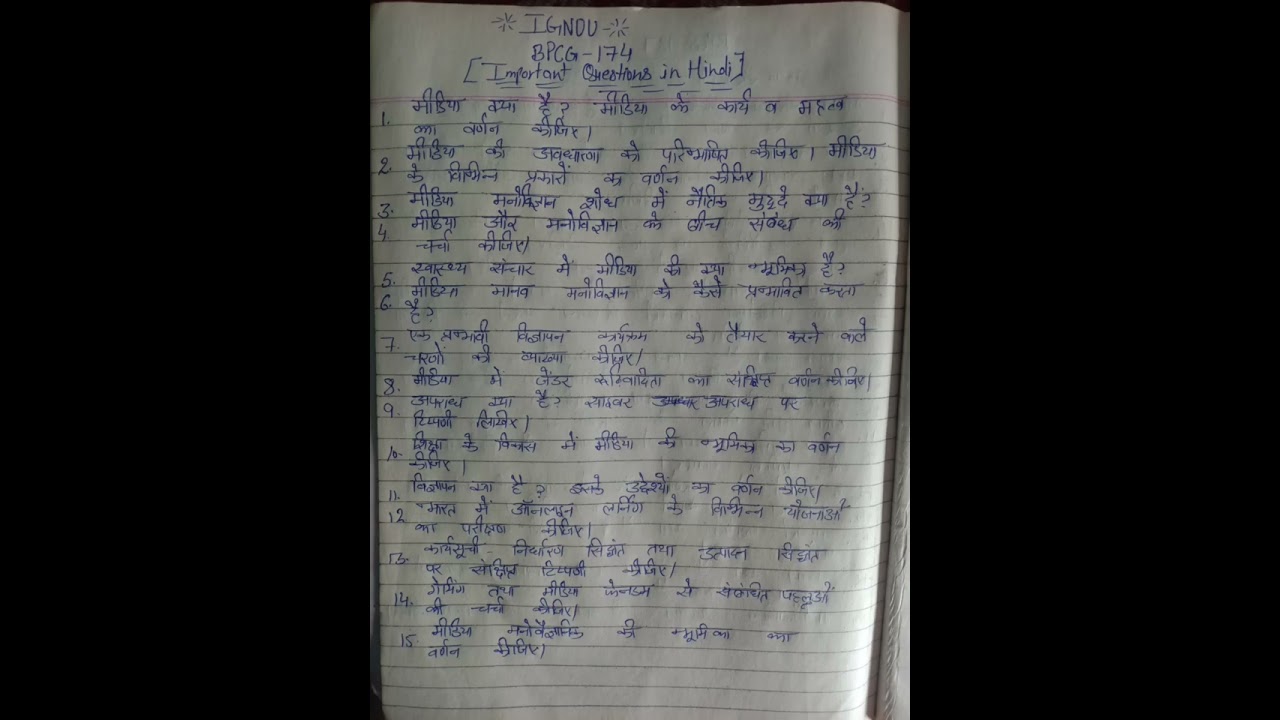 IGNOU
BPCG-174
[Important Questions in Hindi]
1. मीडिया क्या है? मीडिया के कार्य व महत्व
का वर्णन कीजिए।
2. मीडिया की अवधारणा को परिभाषित कीजिए। मीडिया
के विभिन्न प्रकारों का वर्णन कीजिए।
3. मीडिया मनोविज्ञान शोध में नैतिक मुद्दे क्या हैं?
4. मीडिया और मनोविज्ञान के बीच संबंध की
चर्चा कीजिए।
5. स्वास्थ्य संचार में मीडिया की क्या भूमिका है?
6. मीडिया मानव मनोविज्ञान को कैसे प्रभावित करता
है?
7. एक प्रभावी विज्ञापन कार्यक्रम को तैयार करने वाले
चरणों की व्याख्या कीजिए।
8. मीडिया में जेंडर रूढ़िवादिता का संक्षिप्त वर्णन कीजिए।
9. अपराध क्या है? साइबर अपराध पर
टिप्पणी लिखिए।
10. शिक्षा के विकास में मीडिया की भूमिका का वर्णन
कीजिए।
11. विज्ञापन क्या है? इसके उद्देश्यों का वर्णन कीजिए।
12. भारत में ऑनलाइन लर्निंग के विभिन्न योजनाओं
का परीक्षण कीजिए।
13. कार्यसूची-निर्धारण सिद्धांत तथा सिद्धांत
पर संक्षिप्त टिप्पणी कीजिए।
14. गेमिंग तथा मीडिया फेनडम से संबंधित पहलूओं
की चर्चा कीजिए।
15. मीडिया मनोवैज्ञानिक की भूमिका का
वर्णन कीजिए।